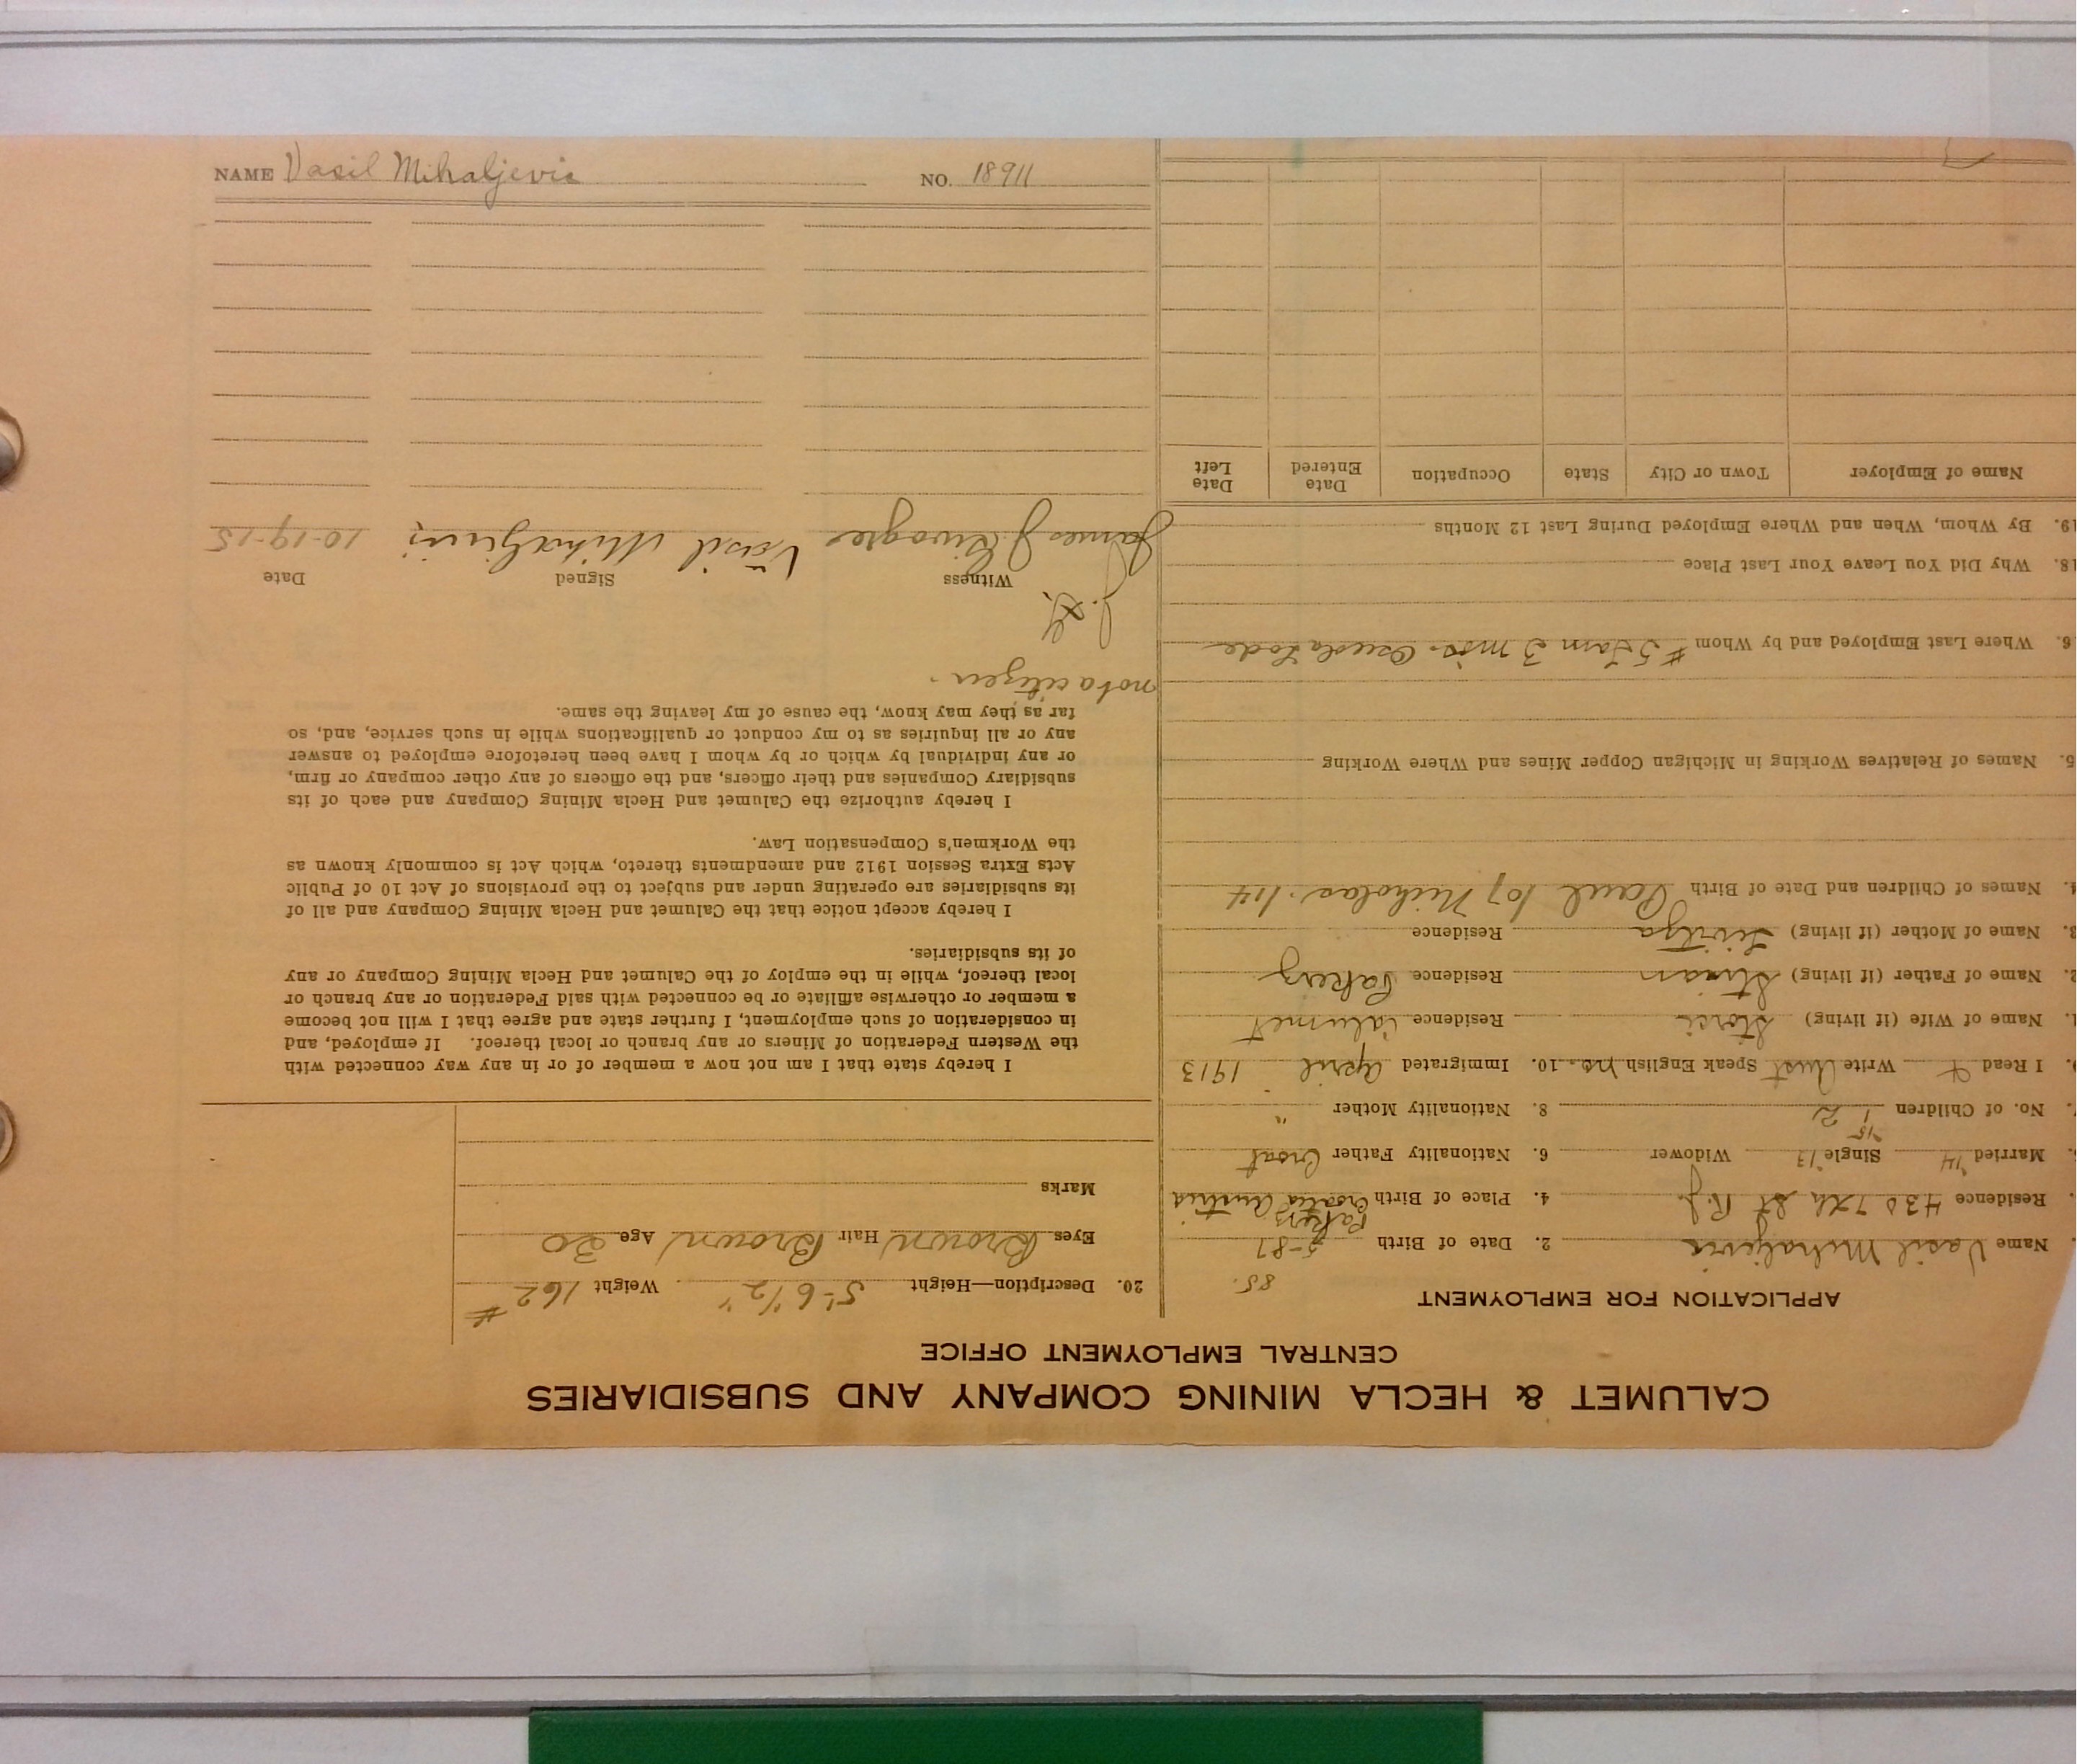 NAME Vasil Mihaljevic NO. 18911
CALUMET & HECLA MINING COMPANY AND SUBSIDIARIES
CENTRAL EMPLOYMENT OFFICE
APPLICATION FOR EMPLOYMENT
88.
Name Vasil Mihaljevic 2. Date of Birth 5-87
Residence 430 7th St R.J. 4. Place of Birth Pakerz Croatia Austria
Married '14 Single '13 Widower 6. Nationality Father Croat
'15
No. of Children 1 2 8. Nationality Mother "
I Read & Write Aust Speak English no 10. Immigrated April 1913
1. Name of Wife (if living) Storci Residence Calumet
2. Name of Father (if living) Residence Pakerz
3. Name of Mother (if living) Residence
4. Names of Children and Date of Birth Paul 107 Nicholas 1 14
5. Names of Relatives Working in Michigan Copper Mines and Where Working
6. Where Last Employed and by Whom #5 Tam 3 mos. Osceola Lode
18. Why Did You Leave Your Last Place
19. By Whom, When and Where Employed During Last 12 Months
Name of Employer Town or City State Occupation Date Entered Date Left
20. Description—Height 5'- 6 1/2" Weight 162 #
Eyes Brown Hair Brown Age 30
Marks
I hereby state that I am not now a member of or in any way connected with
the Western Federation of Miners or any branch or local thereof. If employed, and
in consideration of such employment, I further state and agree that I will not become
a member or otherwise affiliate or be connected with said Federation or any branch or
local thereof, while in the employ of the Calumet and Hecla Mining Company or any
of its subsidiaries.
I hereby accept notice that the Calumet and Hecla Mining Company and all of
its subsidiaries are operating under and subject to the provisions of Act 10 of Public
Acts Extra Session 1912 and amendments thereto, which Act is commonly known as
the Workmen's Compensation Law.
I hereby authorize the Calumet and Hecla Mining Company and each of its
subsidiary Companies and their officers, and the officers of any other company or firm,
or any individual by which or by whom I have been heretofore employed to answer
any or all inquiries as to my conduct or qualifications while in such service, and, so
far as they may know, the cause of my leaving the same.
not a citizen.
Witness Signed Date
James J Vasil Mihaljevic 10-19-15